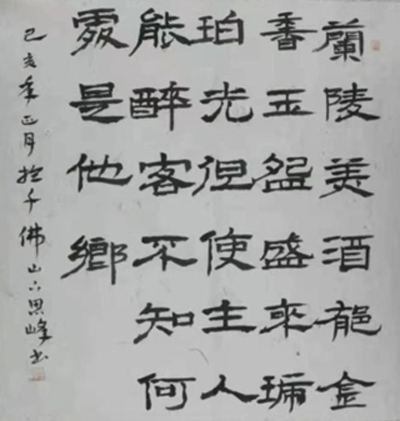 蘭陵美酒郁金
香玉盌盛來琥
珀光但使主人
能醉客不知何
處是他鄉
己亥年正月於千佛山下思峰书